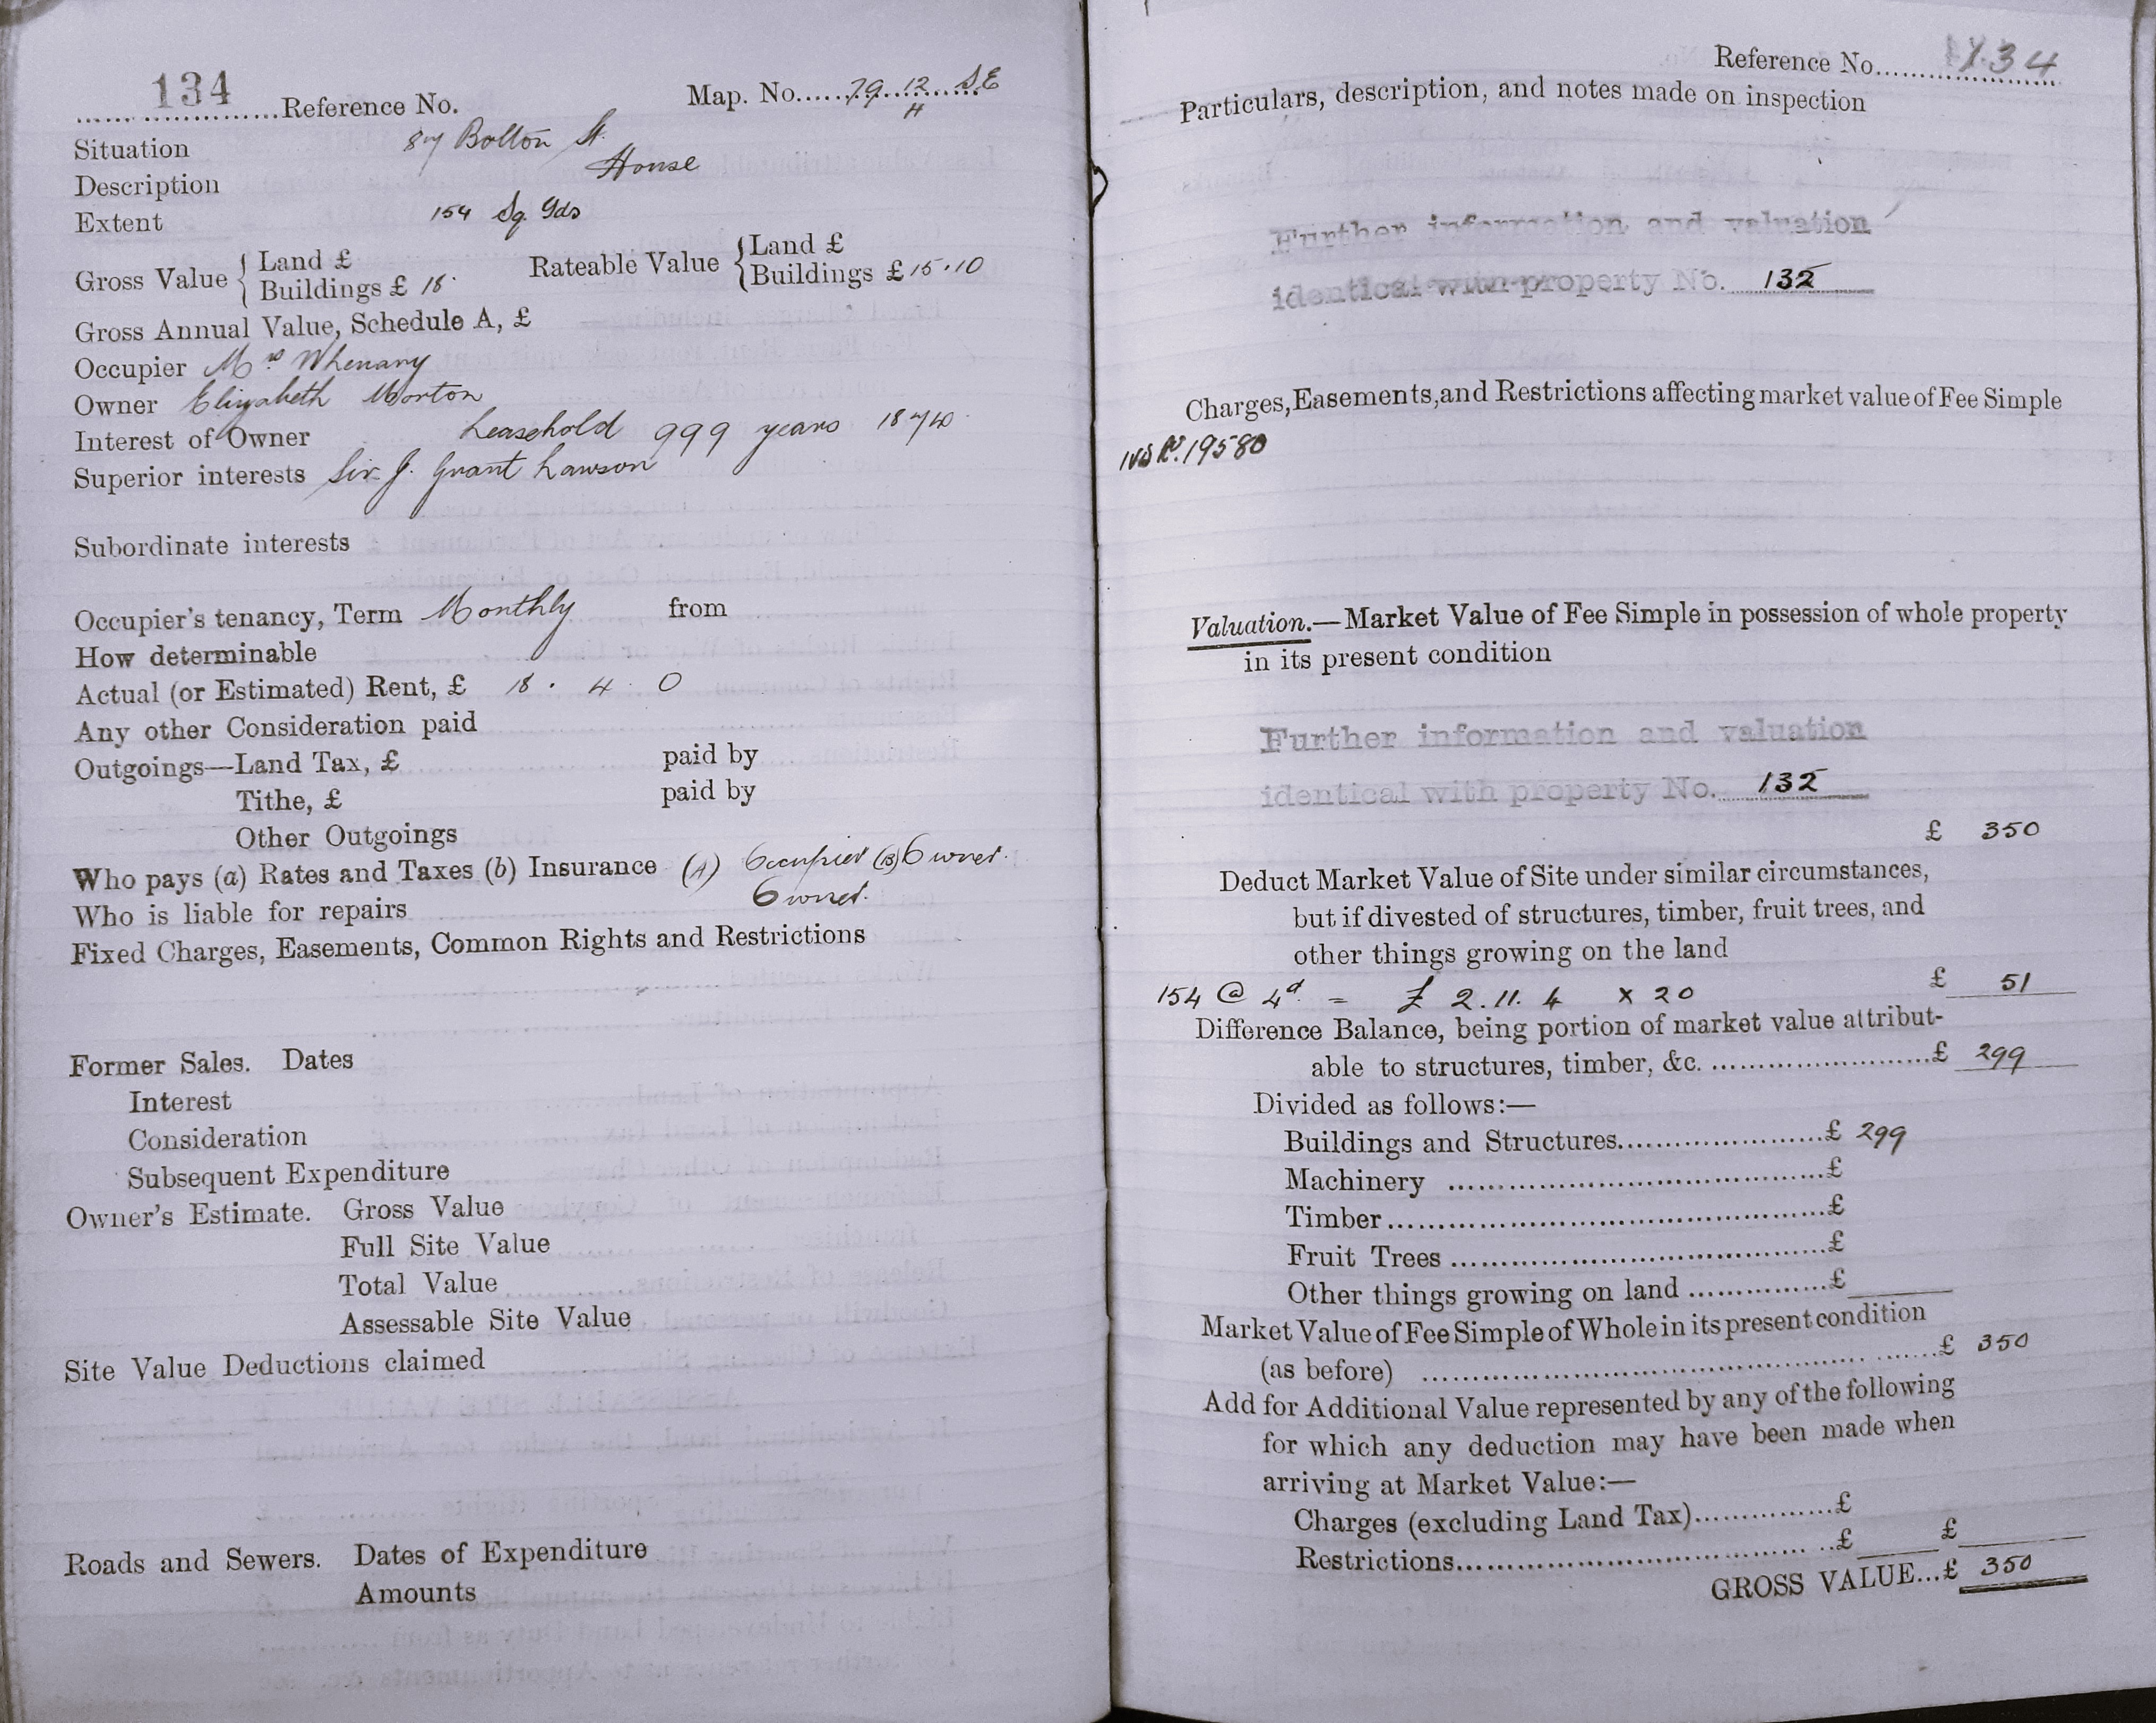 134 Reference No. Map. No. 79.12 S.E
H
Situation 87 Bolton St.
Description House
Extent 154 Sq. Yds
Gross Value { Land £
Buildings £ 18. Rateable Value { Land £
Buildings £ 15.10
Gross Annual Value, Schedule A, £
Occupier Mrs
Owner Elizabeth Morton
Interest of Owner Leasehold 999 years 1874
Superior interests Sir J. Grant Lawson
Subordinate interests
Occupier's tenancy, Term Monthly from
How determinable
Actual (or Estimated) Rent, £ 18 . 4 . 0
Any other Consideration paid
Outgoings—Land Tax, £ paid by
Tithe, £ paid by
Other Outgoings
Who pays (a) Rates and Taxes (b) Insurance (A) Occupier (B) Owner.
Who is liable for repairs Owner.
Fixed Charges, Easements, Common Rights and Restrictions
Former Sales. Dates
Interest
Consideration
Subsequent Expenditure
Owner's Estimate. Gross Value
Full Site Value
Total Value
Assessable Site Value
Site Value Deductions claimed
Roads and Sewers. Dates of Expenditure
Amounts
Reference No. 134
Particulars, description, and notes made on inspection
Further information and valuation
identical with property No. 132
Charges, Easements, and Restrictions affecting market value of Fee Simple
19580
Valuation.—Market Value of Fee Simple in possession of whole property
in its present condition
Further information and valuation
identical with property No. 132
£ 350
Deduct Market Value of Site under similar circumstances,
but if divested of structures, timber, fruit trees, and
other things growing on the land
154 @ 4d = £ 2.11.4 x 20 £ 51
Difference Balance, being portion of market value attribut-
able to structures, timber, &c. £ 299
Divided as follows:—
Buildings and Structures £ 299
Machinery £
Timber £
Fruit Trees £
Other things growing on land £
Market Value of Fee Simple of Whole in its present condition
(as before) £ 350
Add for Additional Value represented by any of the following
for which any deduction may have been made when
arriving at Market Value:—
Charges (excluding Land Tax) £
Restrictions £ £
GROSS VALUE...£ 350